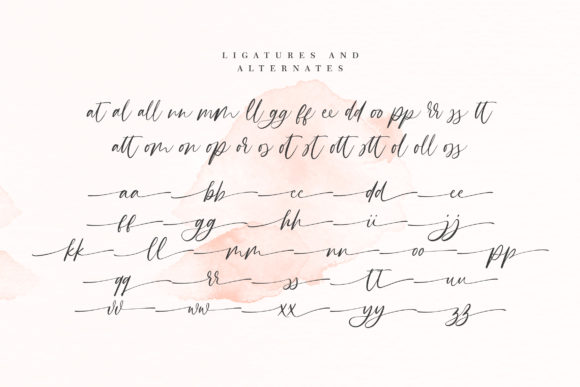 LIGATURES AND
ALTERNATES
at al all nn mm ll gg ff ee dd oo pp rr ss tt
att om on op or os ot st ott stt ol oll oss
aa bb cc dd ee
ff gg hh ii jj
kk ll mm nn oo pp
qq rr ss tt uu
vv ww xx yy zz